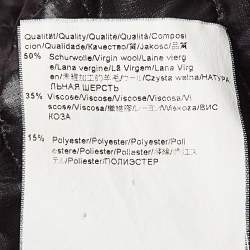 Qualität/Quality/Qualité/Qualità/Composi
cion/Qualidade/Качество/質/Jakość/品質
50% Schurwolle/Virgin wool/Laine vierg
e/Lana vergine/Lã Virgem/Lana Virgen
/ウール/Czysta wełna/НАТУРА
ЛЬНАЯ ШЕРСТЬ
35% Viscose/Viscose/Viscose/Viscosa/Vi
scose/Viscosa/レーヨン/Wiskoza/ВИС
КОЗА
15% Polyester/Polyester/Polyester/Poli
estere/Poliester/Poliester/
ステル/Poliester/ПОЛИЭСТЕР